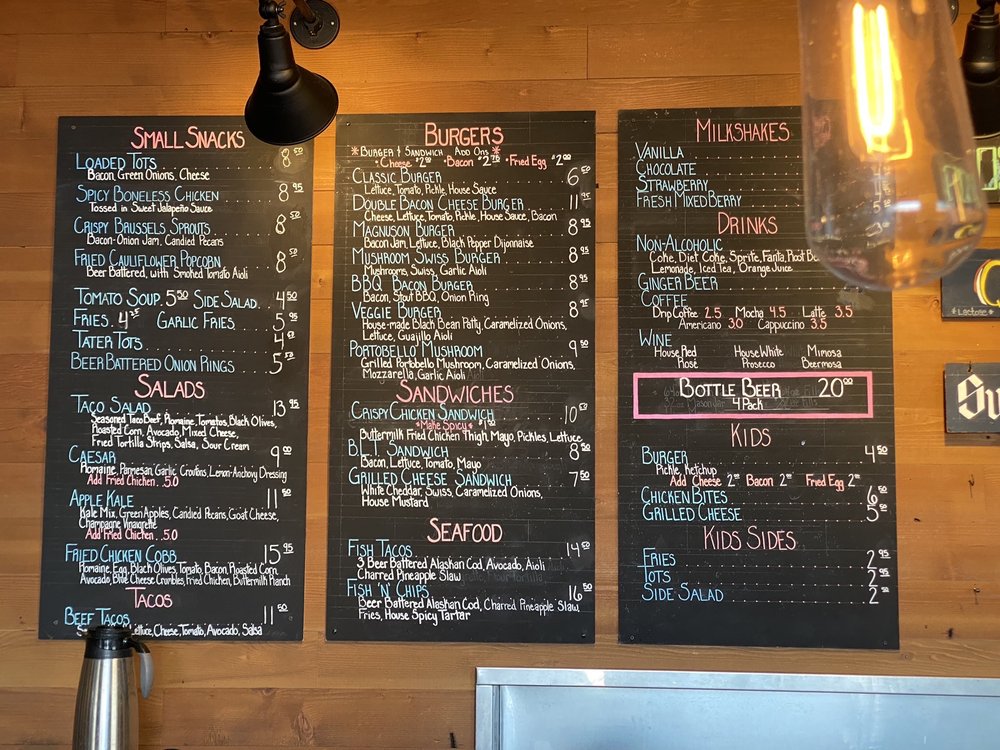 SMALL SNACKS
LOADED TOTS 8 50
Bacon, Green Onions, Cheese
SPICY BONELESS CHICKEN 8 95
Tossed in Sweet Jalapeño Sauce
CRISPY BRUSSELS SPROUTS 8 50
Bacon-Onion Jam, Candied Pecans
FRIED CAULIFLOWER POPCORN 8 50
Beer Battered, with Smoked Tomato Aioli
TOMATO SOUP. 5 50 SIDE SALAD. 4 50
FRIES. 4 25 GARLIC FRIES 5 95
TATER TOTS 4
BEER BATTERED ONION RINGS 5
SALADS
TACO SALAD 13 95
Seasoned Taco Beef, Romaine, Tomatos, Black Olives,
Roasted Corn, Avocado, Mixed Cheese,
Fried Tortilla Strips, Salsa, Sour Cream
CAESAR 9 00
Romaine, Parmesan, Garlic Croutons, Lemon-Anchovy Dressing
Add Fried Chicken . 5.0
APPLE KALE 11 50
Kale Mix, Green Apples, Candied Pecans, Goat Cheese,
Champagne Vinaigrette
Add Fried Chicken . 5.0
FRIED CHICKEN COBB 15 95
Romaine, Egg, Black Olives, Tomato, Bacon, Roasted Corn,
Avocado, Blue Cheese Crumbles, Fried Chicken, Buttermilk Ranch
TACOS
BEEF TACOS 11 50
Lettuce, Cheese, Tomato, Avocado, Salsa
BURGERS
* BURGER & SANDWICH ADD ONS *
• Cheese $2.00 • Bacon $2.75 • Fried Egg $2.00
CLASSIC BURGER 6 50
Lettuce, Tomato, Pickle, House Sauce
DOUBLE BACON CHEESE BURGER 11 95
Cheese, Lettuce, Tomato, Pickle, House Sauce, Bacon
MAGNUSON BURGER 8 95
Bacon Jam, Lettuce, Black Pepper Dijonnaise
MUSHROOM SWISS BURGER 8 95
Mushrooms, Swiss, Garlic Aioli
BBQ BACON BURGER 8 95
Bacon, Stout BBQ, Onion Ring
VEGGIE BURGER 8 95
House-made Black Bean Patty, Caramelized Onions,
Lettuce, Guajillo Aioli
PORTOBELLO MUSHROOM 9 50
Grilled Portobello Mushroom, Caramelized Onions,
Mozzarella, Garlic Aioli
SANDWICHES
CRISPY CHICKEN SANDWICH 10
*Make Spicy*
Buttermilk Fried Chicken Thigh, Mayo, Pickles, Lettuce
B.L.T. SANDWICH 8 50
Bacon, Lettuce, Tomato, Mayo
GRILLED CHEESE SANDWICH 7 50
White Cheddar, Swiss, Caramelized Onions,
House Mustard
SEAFOOD
FISH TACOS 14 50
3 Beer Battered Alaskan Cod, Avocado, Aioli
Charred Pineapple Slaw
FISH 'N' CHIPS 16 50
Beer Battered Alaskan Cod, Charred Pineapple Slaw
Fries, House Spicy Tartar
MILKSHAKES
VANILLA
CHOCOLATE
STRAWBERRY
FRESH MIXED BERRY
DRINKS
NON-ALCOHOLIC
Coke, Diet Coke, Sprite, Fanta, Root Beer
Lemonade, Iced Tea, Orange Juice
GINGER BEER
COFFEE
Drip Coffee 2.5 Mocha 4.5 Latte 3.5
Americano 3.0 Cappuccino 3.5
WINE
House Red House White Mimosa
Rosé Prosecco Beermosa
BOTTLE BEER 20 00
4 Pack
KIDS
BURGER 4 50
Pickle, Ketchup
Add Cheese 2 00 Bacon 2 00 Fried Egg 2 00
CHICKEN BITES 6 50
GRILLED CHEESE 5 50
KIDS SIDES
FRIES 2 95
TOTS 2 95
SIDE SALAD 2 50
* Lactose *
Su